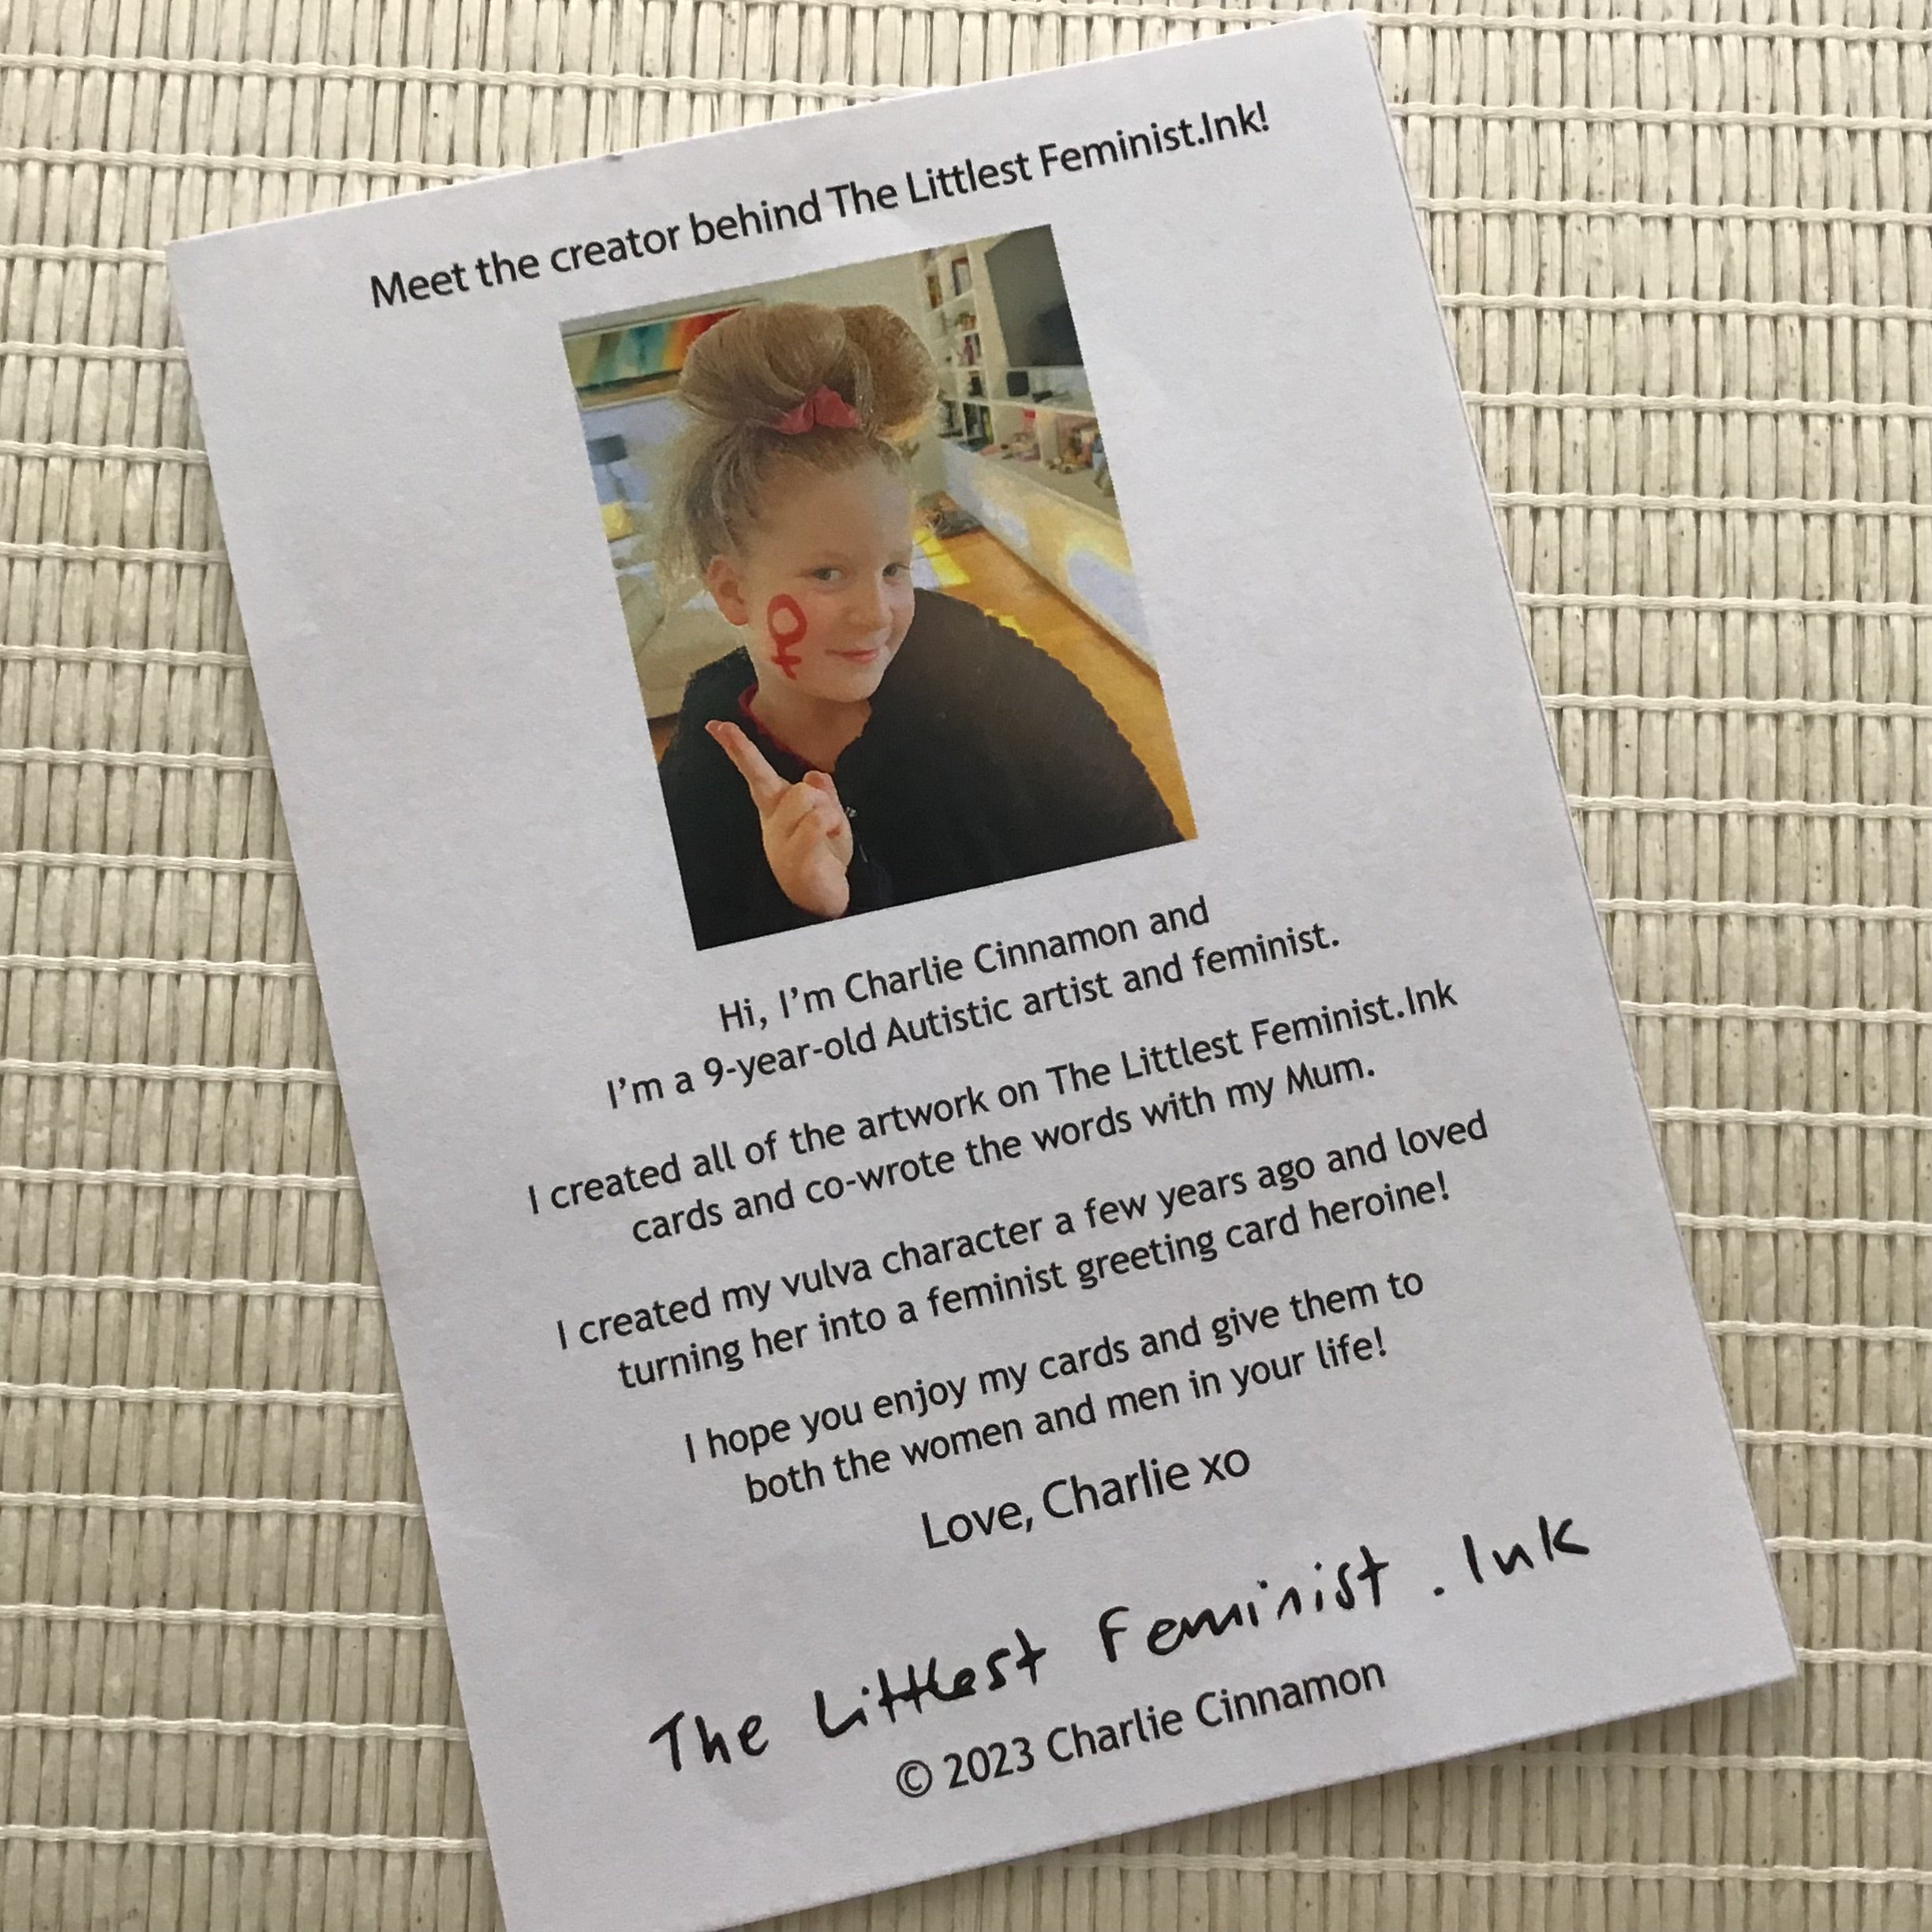 Meet the creator behind The Littlest Feminist.Ink!
Hi, I'm Charlie Cinnamon and
I'm a 9-year-old Autistic artist and feminist.
I created all of the artwork on The Littlest Feminist.Ink
cards and co-wrote the words with my Mum.
I created my vulva character a few years ago and loved
turning her into a feminist greeting card heroine!
I hope you enjoy my cards and give them to
both the women and men in your life!
Love, Charlie xo
The Littlest Feminist.Ink
© 2023 Charlie Cinnamon